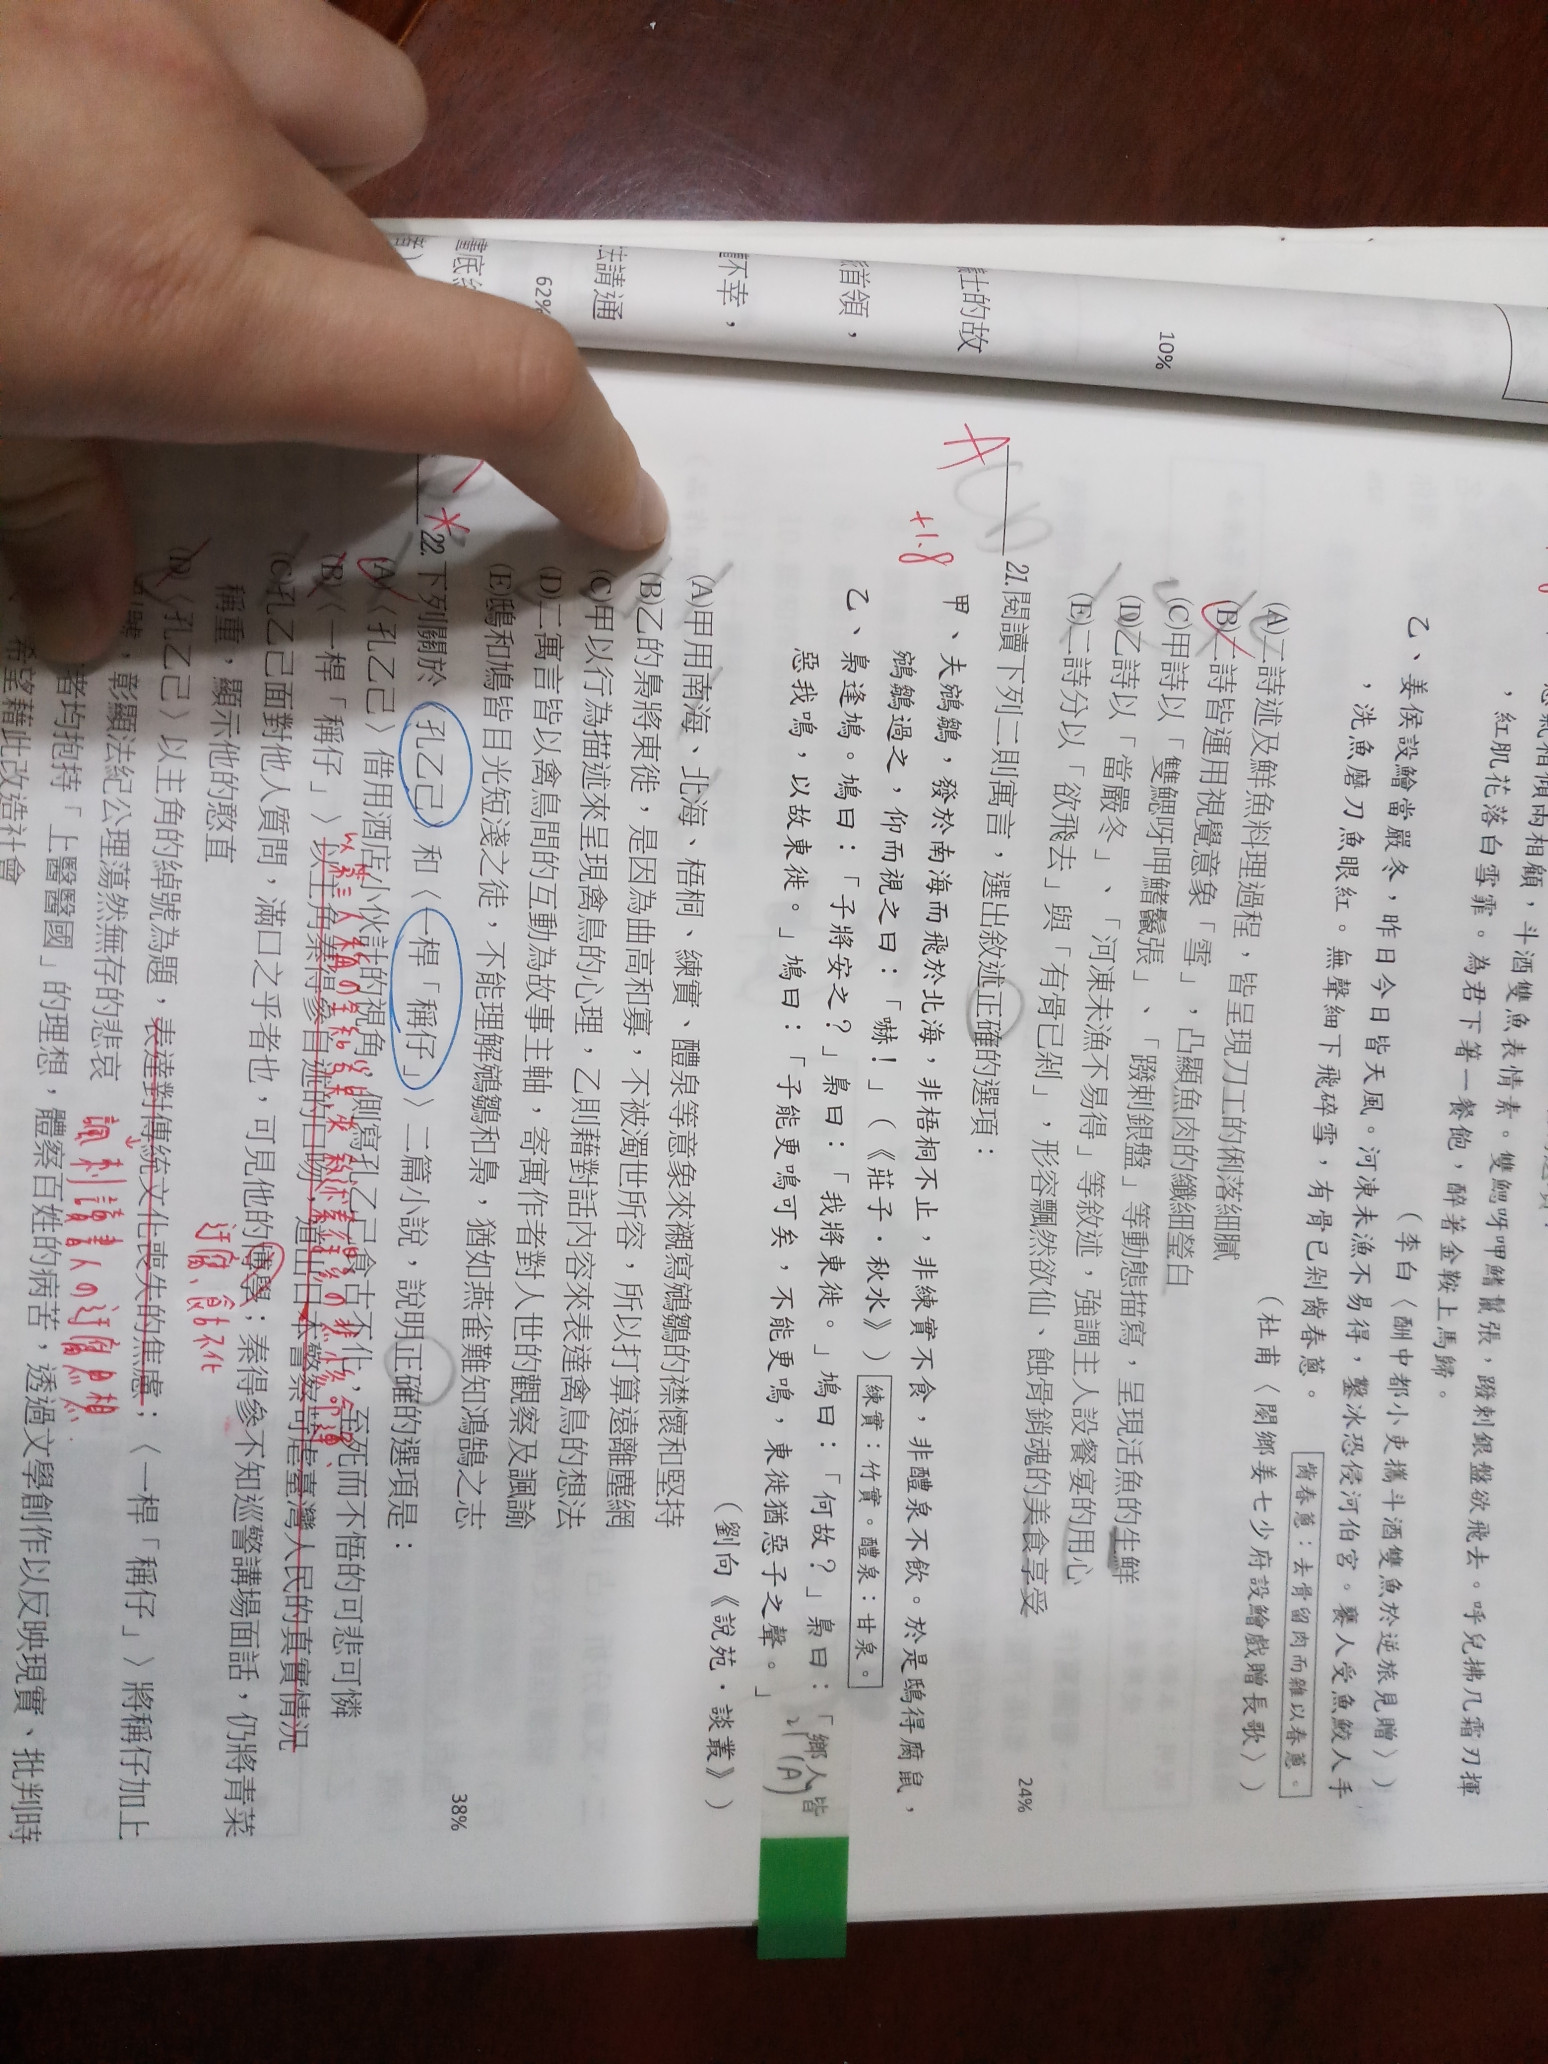 ，紅肌花落白雪霏。為君下箸一餐飽，醉著金鞍上馬歸。
（李白〈酬中都小吏攜斗酒雙魚於逆旅見贈〉）
乙、姜侯設鱠當嚴冬，昨日今日皆天風。河凍未漁不易得，鑿冰恐侵河伯宮。饔人受魚鮫人手
，洗魚磨刀魚眼紅。無聲細下飛碎雪，有骨已剁觜春蔥。
觜春蔥：去骨留肉而雜以春蔥。
（杜甫〈閿鄉姜七少府設鱠戲贈長歌〉）
(A)二詩述及鮮魚料理過程，皆呈現刀工的俐落細膩
(B)二詩皆運用視覺意象「雪」，凸顯魚肉的纖細瑩白
(C)甲詩以「雙鰓呀呷鰭鬣張」、「蹳剌銀盤」等動態描寫，呈現活魚的生鮮
(D)乙詩以「當嚴冬」、「河凍未漁不易得」等敘述，強調主人設餐宴的用心
(E)二詩分以「欲飛去」與「有骨已剁」，形容飄然欲仙、蝕骨銷魂的美食享受
21.閱讀下列二則寓言，選出敘述正確的選項：
24%
+1.8
甲、夫鵷鶵，發於南海而飛於北海，非梧桐不止，非練實不食，非醴泉不飲。於是鴟得腐鼠，
鵷鶵過之，仰而視之曰：「嚇！」（《莊子．秋水》）
練實：竹實。醴泉：甘泉。
乙、梟逢鳩。鳩曰：「子將安之？」梟曰：「我將東徙。」鳩曰：「何故？」梟曰：「鄉人皆
惡我鳴，以故東徙。」鳩曰：「子能更鳴可矣，不能更鳴，東徙猶惡子之聲。」
（劉向《說苑．談叢》）
21 (A)
(A)甲用南海、北海、梧桐、練實、醴泉等意象來襯寫鵷鶵的襟懷和堅持
(B)乙的梟將東徙，是因為曲高和寡，不被濁世所容，所以打算遠離塵網
(C)甲以行為描述來呈現禽鳥的心理，乙則藉對話內容來表達禽鳥的想法
(D)二寓言皆以禽鳥間的互動為故事主軸，寄寓作者對人世的觀察及諷諭
(E)鴟和鳩皆目光短淺之徒，不能理解鵷鶵和梟，猶如燕雀難知鴻鵠之志
22.下列關於〈孔乙己〉和〈一桿「稱仔」〉二篇小說，說明正確的選項是：
38%
(A)〈孔乙己〉借用酒店小伙計的視角，側寫孔乙己食古不化，至死而不悟的可悲可憐
(B)〈一桿「稱仔」〉以主角秦得參自述的口吻，道出日本警察苛虐臺灣人民的真實情況
(C)孔乙己面對他人質問，滿口之乎者也，可見他的博學；秦得參不知巡警講場面話，仍將青菜
稱重，顯示他的憨直
迂腐、食古不化
(D)〈孔乙己〉以主角的綽號為題，表達對傳統文化喪失的焦慮；〈一桿「稱仔」〉將稱仔加上
，彰顯法紀公理蕩然無存的悲哀
諷刺讀書人の迂腐
者均抱持「上醫醫國」的理想，體察百姓的病苦，透過文學創作以反映現實、批判時
希望藉此改造社會
10%
士的故
首領，
不幸，
法請通
62%